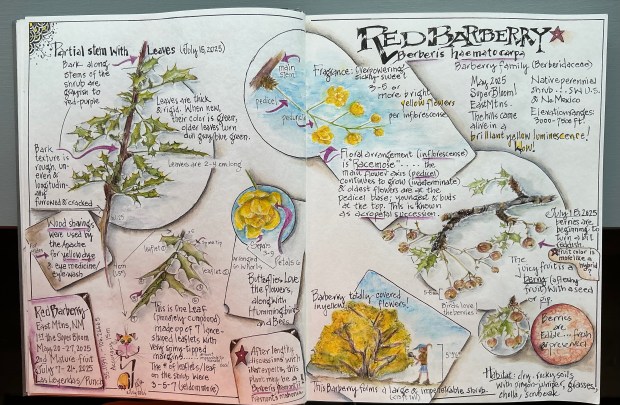 Partial stem with Leaves (July 15, 2025)
Bark along
stems of the
shrub are
grayish to
red-purple
Leaves are thick
& rigid. When new,
their color is green,
older leaves turn
dun gray/blue, green.
Bark
texture is
rough, un-
even &
longitudin-
ally
furrowed & cracked
Leaves are 2-4 cm long
Wood shavings
were used by
the Apache
for yellow dye
& eye medicine/
eye wash
leaflet
spine tip
leaflet
This is One Leaf
(pinnately compound)
made up of 7 lance-
shaped leaflets with
very spiny-tipped
margins.
The # of leaflets/leaf
on the shrub were
3-5-7 (seldom more)
Red Barberry
East Mtns, NM
1st the Super Bloom
May 20-27, 2025
2nd Mature fruit
July 7-21, 2025
Las Legendas/Punch
Sepals
3-5
arranged
in whorls
Petals 6
Butterflies Love
the flowers,
along with
Hummingbirds
and Bees
After lengthy
discussions
with experts, this
plant may be a
Berberis
Fremont's mahonia
Red Barberry
Berberis haematocarpa
Barberry family (Berberidaceae)
main
stem
pedicel
peduncle
Fragrance: Overpowering,
sickly-sweet
3-5 or
more bright
yellow flowers
per inflorescense.
May, 2025
Super Bloom!
East Mtns.
The hills came
alive in a
brilliant yellow luminescence!
Wow!
Native perennial
shrub... SW U.S.
& No. Mexico
Elevation ranges:
3000-7500 ft.
Floral arrangement (inflorescense)
is "Racemose".... the
main flower axis (pedicel)
continues to grow (indeterminate)
& oldest flowers are at the
pedicel base; youngest & buds
at the top. This is known
as acropetal succession.
July 15, 2025
berries are
beginning to
turn a bit
reddish.
fruit color is
more like a
hybrid
The
juicy fruit is a
berry (a fleshy
fruit) with a seed
or zip.
Birds love the
berries
Berries
are
Edible... fresh
& preserved
Barberry totally covered
in yellow flowers!
This Barberry forms a large & impenetrable shrub.
Habitat: dry, rocky soils
with pinyon-juniper, grasses,
cholla, scrub oak